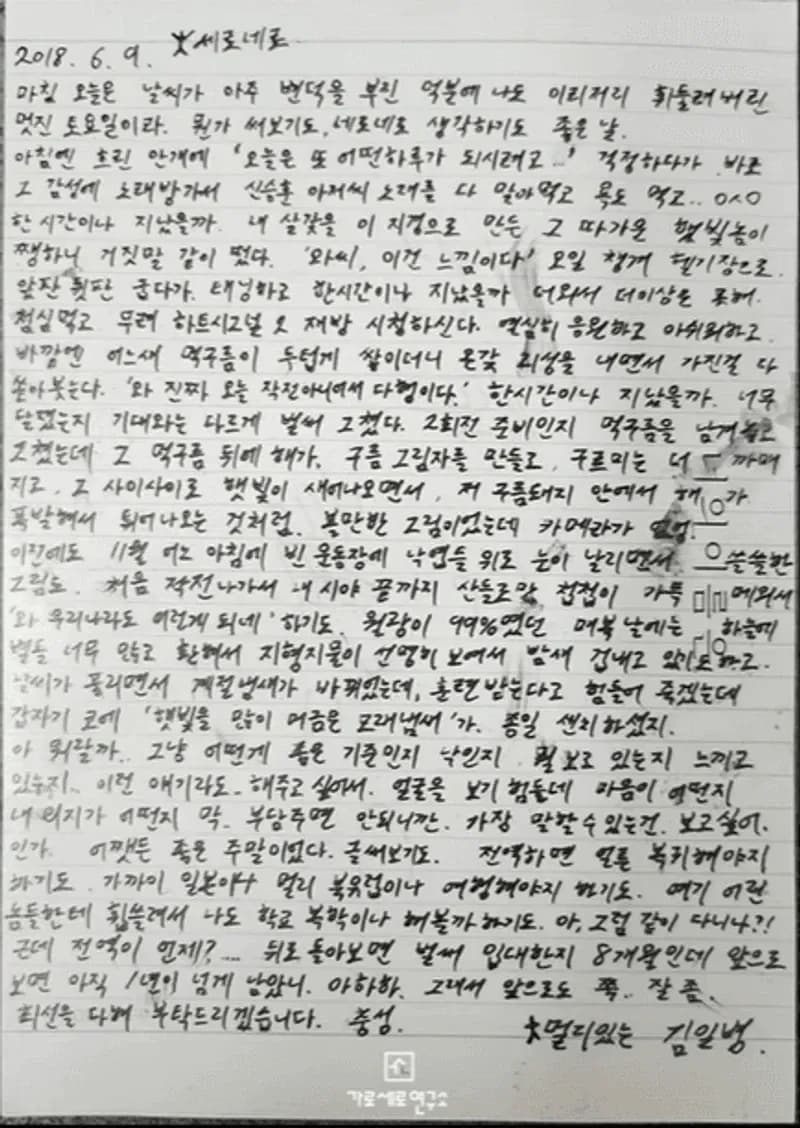 2018. 6. 9. 大세로네로
마침 오늘은 날씨가 아주 변덕을 부린 덕분에 나도 이리저리 휘둘려버린
멋진 토요일이라. 뭔가 써보기도, 네로네로 생각하기도 좋은 날.
아침엔 흐린 안개에 '오늘은 또 어떤하루가 되시려고...' 걱정하다가 바로
그 감성에 노래방가서 신승훈 아저씨 노래를 다 말아먹고 욕도 먹고.. ㅇㅅㅇ
한 시간이나 지났을까. 내 살갗을 이 지경으로 만든 그 따가운 햇빛놈이
쨍하니 거짓말 같이 떴다. '와씨, 이건 느낌이다' 오일 챙겨 헬기장으로.
앞판 뒷판 굽다가. 태닝하고 한시간이나 지났을까 더워서 더이상은 못해.
점심먹고 무려 하트시그널 2 재방 시청하신다. 열심히 응원하고 아쉬워하고.
바깥엔 어느새 먹구름이 두텁게 쌓이더니 온갖 괴성을 내면서 가진걸 다
쏟아붓는다. '와 진짜 오늘 작전아니여서 다행이다.' 한시간이나 지났을까. 너무
달랬는지 기대와는 다르게 벌써 그쳤다. 2회전 준비인지 먹구름을 남겨놓고
그쳤는데 그 먹구름 뒤에 해가. 구름 그림자를 만들고, 구르미는 더 까매
지고. 그 사이사이로 햇빛이 새어나오면서, 저 구름돼지 안에서 해가
폭발해서 튀어나오는 것처럼. 볼만한 그림이었는데 카메라가 없엉.
이전에도 11월 어느 아침에 빈 운동장에 낙엽들 위로 눈이 날리면서 쓸쓸한
그림도. 처음 작전나가서 내 시야 끝까지 산들로만 첩첩이 가득 메워서
'와 우리나라도 이렇게 되네' 하기도. 월광이 99%였던 며칠 날에는 하늘에
별들 너무 많고 환해서 지형지물이 선명히 보여서 밤새 겁내고 있기도하고.
날씨가 풀리면서 계절냄새가 바뀌었는데, 훈련받는다고 힘들어 죽겠는데
갑자기 코에 '햇빛을 많이 머금은 모래냄새'가. 종일 센치하셨지.
아 뭐랄까.. 그냥 어떤게 좋은 기준인지 낙인지 뭘 보고 있는지 느끼고
있는지.. 이런 얘기라도.. 해주고 싶어서. 얼굴을 보기 힘들데 마음이 어떤지
내 의지가 어떤지 막.. 부담주면 안되니깐. 가장 말할수있는건. 보고싶어.
인가. 어쨋든 좋은 주말이었다. 글써보기도. 전역하면 얼른 복귀해야지
하기도. 가까이 일본이나 멀리 북유럽이나 여행해야지 하기도. 여기 어린
놈들한테 휩쓸려서 나도 학교 복학이나 해볼까 하기도. 아, 그럼 같이 다니나?!
근데 전역이 언제?.... 뒤로 돌아보면 벌써 입대한지 8개월인데 앞으로
보면 아직 1년이 넘게 남았니. 아하하. 그래서 앞으로도 쭉.. 잘 좀.
최선을 다해 부탁드리겠습니다. 충성.
大멀리있는 김일병.
가로세로연구소